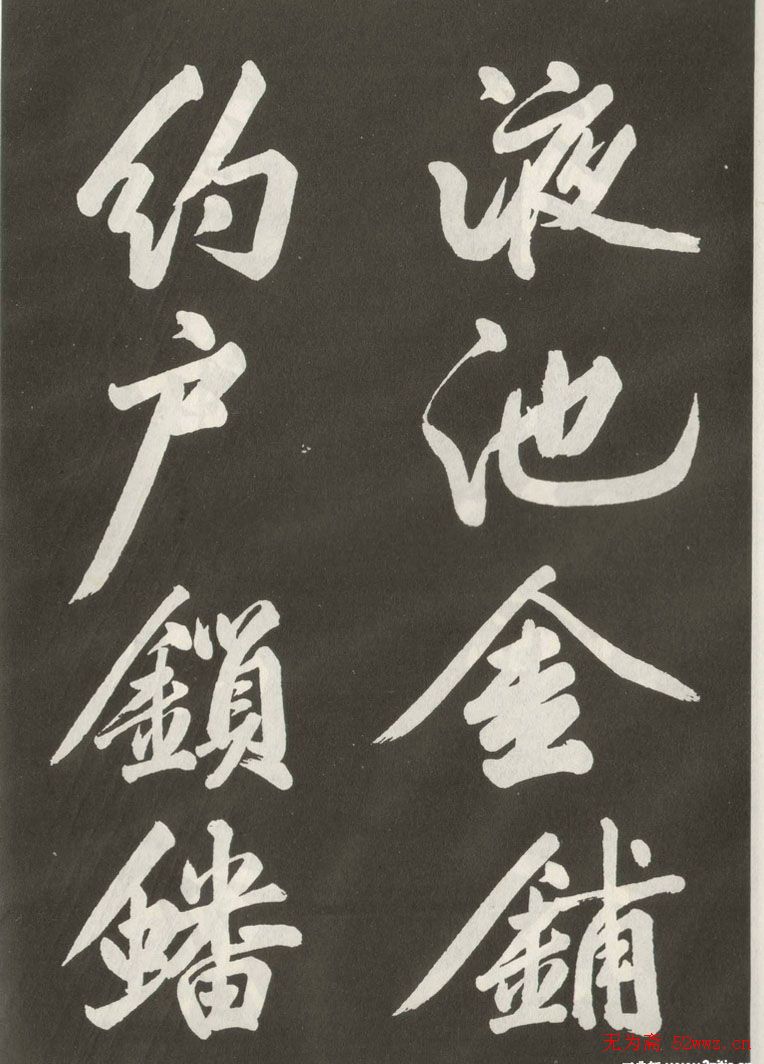 液池金鋪
約户鎖蟠
无为斋 52wwz.cn